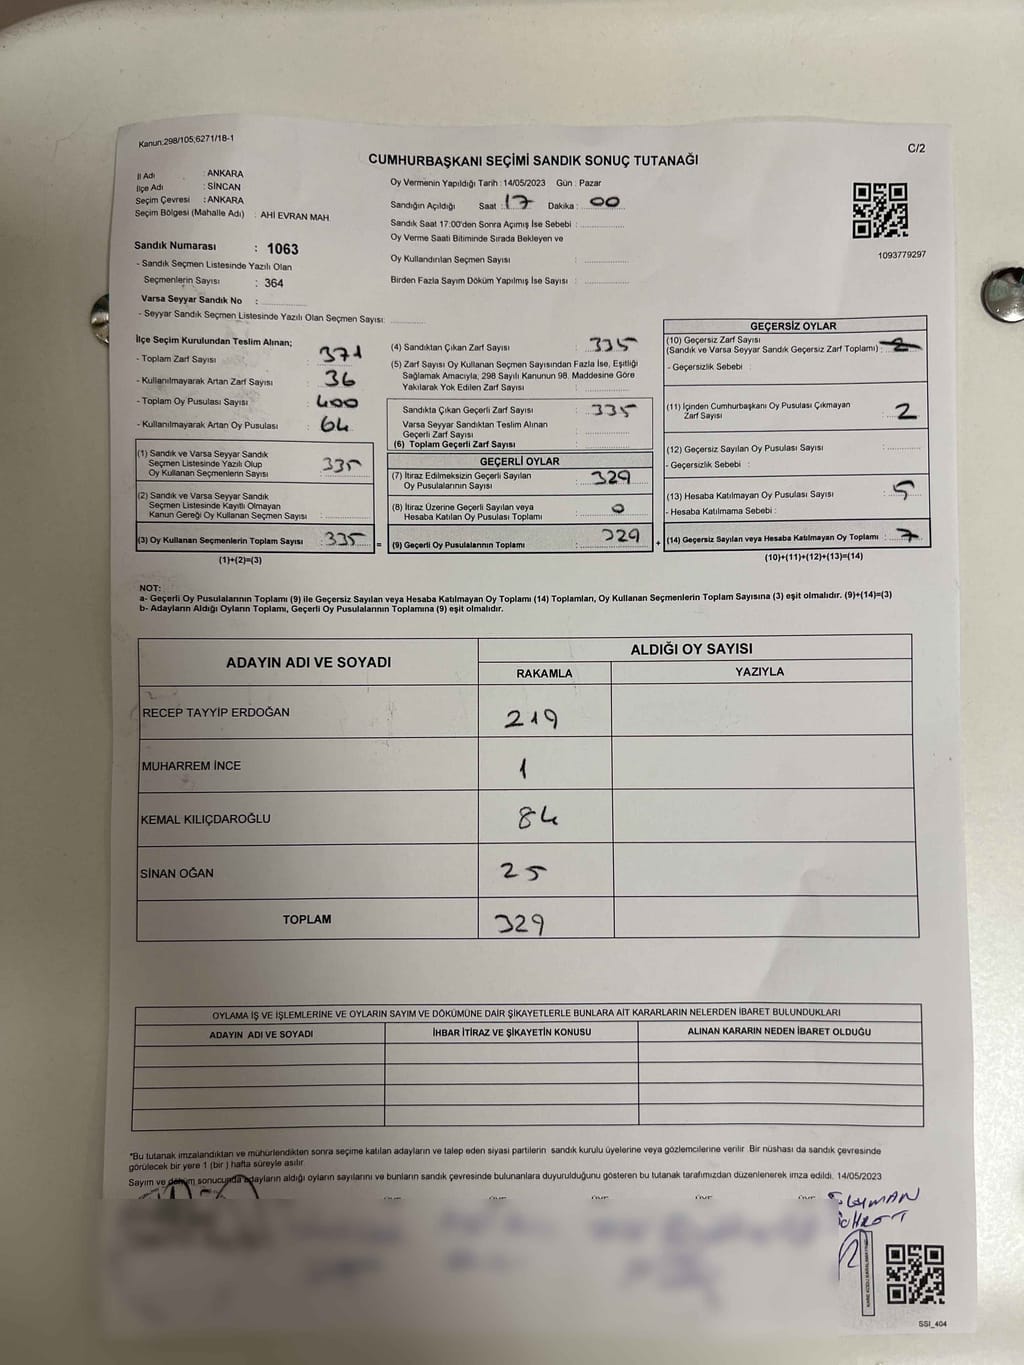 Kanun.298/105;6271/18-1
C/2
CUMHURBAŞKANI SEÇİMİ SANDIK SONUÇ TUTANAĞI
İl Adı : ANKARA
İlçe Adı : SİNCAN
Seçim Çevresi : ANKARA
Seçim Bölgesi (Mahalle Adı) : AHİ EVRAN MAH.
Sandık Numarası : 1063
- Sandık Seçmen Listesinde Yazılı Olan
Seçmenlerin Sayısı : 364
Varsa Seyyar Sandık No :
- Seyyar Sandık Seçmen Listesinde Yazılı Olan Seçmen Sayısı:
Oy Vermenin Yapıldığı Tarih : 14/05/2023 Gün : Pazar
Sandığın Açıldığı Saat : 17 Dakika : 00
Sandık Saat 17:00'den Sonra Açımış İse Sebebi :
Oy Verme Saati Bitiminde Sırada Bekleyen ve
Oy Kullandırılan Seçmen Sayısı :
Birden Fazla Sayım Döküm Yapılmış İse Sayısı :
1093779297
İlçe Seçim Kurulundan Teslim Alınan;
- Toplam Zarf Sayısı : 371
- Kullanılmayarak Artan Zarf Sayısı : 36
- Toplam Oy Pusulası Sayısı : 400
- Kullanılmayarak Artan Oy Pusulası : 64
(1) Sandık ve Varsa Seyyar Sandık
Seçmen Listesinde Yazılı Olup
Oy Kullanan Seçmenlerin Sayısı : 335
(2) Sandık ve Varsa Seyyar Sandık
Seçmen Listesinde Kayıtlı Olmayan
Kanun Gereği Oy Kullanan Seçmen Sayısı :
(3) Oy Kullanan Seçmenlerin Toplam Sayısı : 335 =
(1)+(2)=(3)
(4) Sandıktan Çıkan Zarf Sayısı : 335
(5) Zarf Sayısı Oy Kullanan Seçmen Sayısından Fazla İse, Eşitliği
Sağlamak Amacıyla, 298 Sayılı Kanunun 98. Maddesine Göre
Yakılarak Yok Edilen Zarf Sayısı :
Sandıkta Çıkan Geçerli Zarf Sayısı : 335
Varsa Seyyar Sandıktan Teslim Alınan
Geçerli Zarf Sayısı :
(6) Toplam Geçerli Zarf Sayısı :
GEÇERLİ OYLAR
(7) İtiraz Edilmeksizin Geçerli Sayılan
Oy Pusulalarının Sayısı : 329
(8) İtiraz Üzerine Geçerli Sayılan veya
Hesaba Katılan Oy Pusulası Toplamı : 0
(9) Geçerli Oy Pusulalarının Toplamı : 329 +
GEÇERSİZ OYLAR
(10) Geçersiz Zarf Sayısı
(Sandık ve Varsa Seyyar Sandık Geçersiz Zarf Toplamı) :
- Geçersizlik Sebebi :
(11) İçinden Cumhurbaşkanı Oy Pusulası Çıkmayan
Zarf Sayısı : 2
(12) Geçersiz Sayılan Oy Pusulası Sayısı :
- Geçersizlik Sebebi :
(13) Hesaba Katılmayan Oy Pusulası Sayısı : 5
- Hesaba Katılmama Sebebi :
(14) Geçersiz Sayılan veya Hesaba Katılmayan Oy Toplamı : 7
(10)+(11)+(12)+(13)=(14)
NOT:
a- Geçerli Oy Pusulalarının Toplamı (9) ile Geçersiz Sayılan veya Hesaba Katılmayan Oy Toplamı (14) Toplamları, Oy Kullanan Seçmenlerin Toplam Sayısına (3) eşit olmalıdır. (9)+(14)=(3)
b- Adayların Aldığı Oyların Toplamı, Geçerli Oy Pusulalarının Toplamına (9) eşit olmalıdır.
ADAYIN ADI VE SOYADI
ALDIĞI OY SAYISI
RAKAMLA YAZIYLA
RECEP TAYYİP ERDOĞAN 219
MUHARREM İNCE 1
KEMAL KILIÇDAROĞLU 84
SİNAN OĞAN 25
TOPLAM 329
OYLAMA İŞ VE İŞLEMLERİNE VE OYLARIN SAYIM VE DÖKÜMÜNE DAİR ŞİKAYETLERLE BUNLARA AİT KARARLARIN NELERDEN İBARET BULUNDUKLARI
ADAYIN ADI VE SOYADI İHBAR İTİRAZ VE ŞİKAYETİN KONUSU ALINAN KARARIN NEDEN İBARET OLDUĞU
*Bu tutanak imzalandıktan ve mühürlendikten sonra seçime katılan adayların ve talep eden siyasi partilerin sandık kurulu üyelerine veya gözlemcilerine verilir. Bir nüshası da sandık çevresinde
görülecek bir yere 1 (bir ) hafta süreyle asılır.
Sayım ve döküm sonucunda adayların aldığı oyların sayılarını ve bunların sandık çevresinde bulunanlara duyurulduğunu gösteren bu tutanak tarafımızdan düzenlenerek imza edildi. 14/05/2023
SSI_404